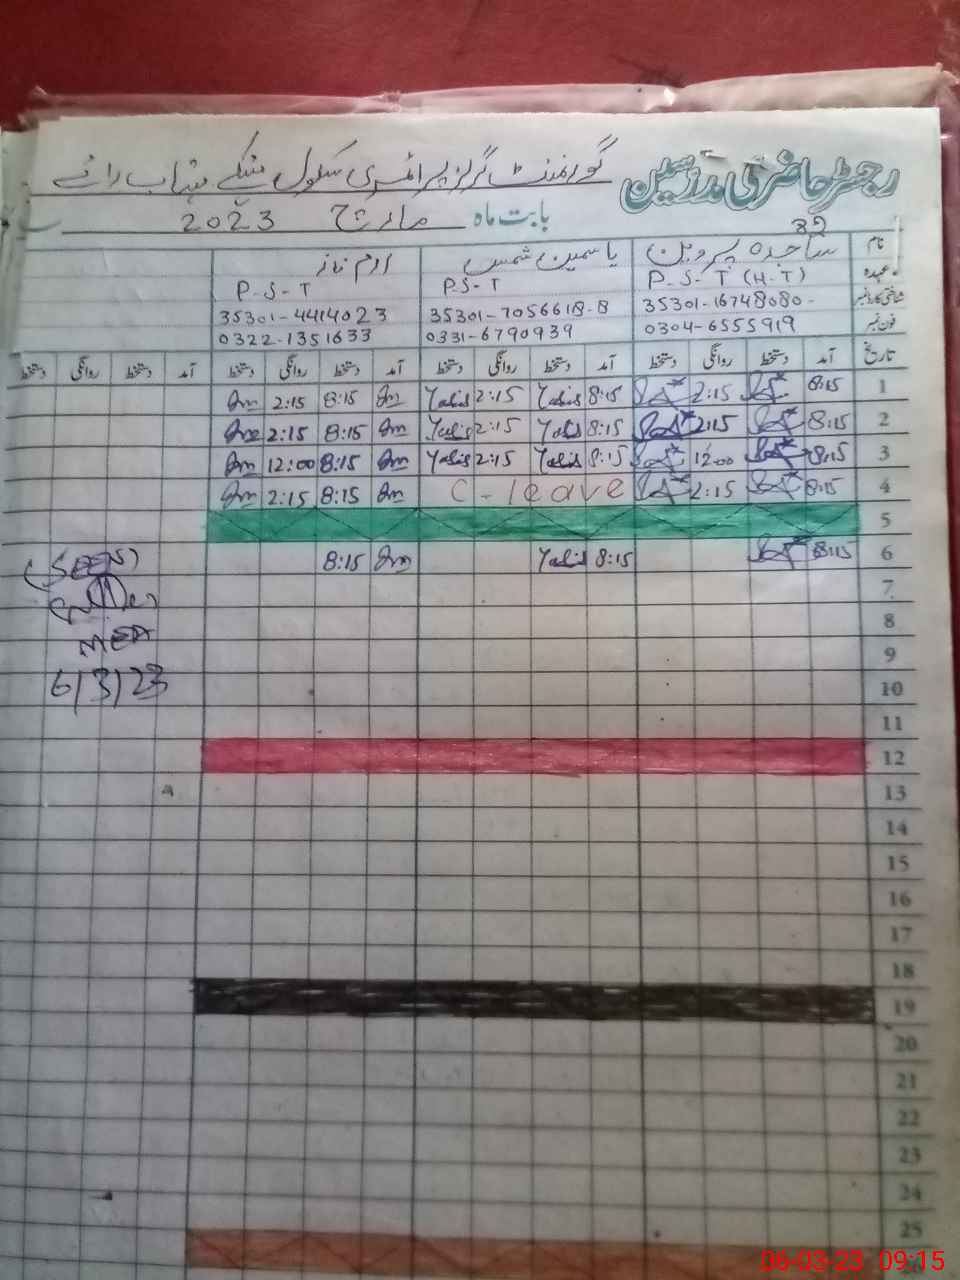 رجسٹر حاضری مدرسین گورنمنٹ گرلز پرائمری سکول
بابت ماہ مارچ 2023
نام ساجدہ پروین یاسمین شمس ارم ناز
عہدہ P.S.T (H.T) P.S-T P-S-T
شناختی کارڈ نمبر 35301-16748080- 35301-7056618-8 35301-4414023
فون نمبر 0304-6555919 0331-6790939 0322-1351633
تاریخ آمد دستخط روانگی دستخط آمد دستخط روانگی دستخط آمد دستخط روانگی دستخط آمد دستخط روانگی دستخط
1 8:15 2:15 8:15 2:15 8:15 2:15
2 8:15 2:15 8:15 2:15 8:15 2:15
3 8:15 12:00 8:15 2:15 8:15 12:00
4 8:15 2:15 C-leave 8:15 2:15
5
6 8:15 8:15 8:15
(SEEN)
7
8
MEA
9
6/3/23
10
11
12
13
14
15
16
17
18
19
20
21
22
23
24
25
06-03-23 09:15